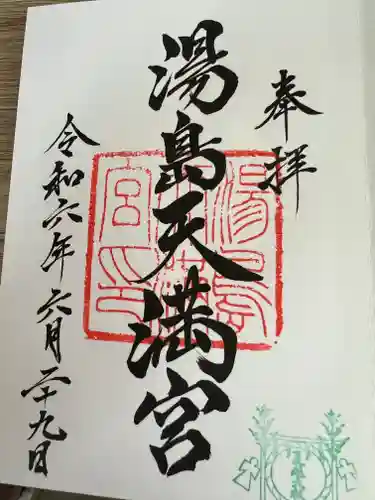 奉拝
湯島天満宮
令和六年六月二十九日